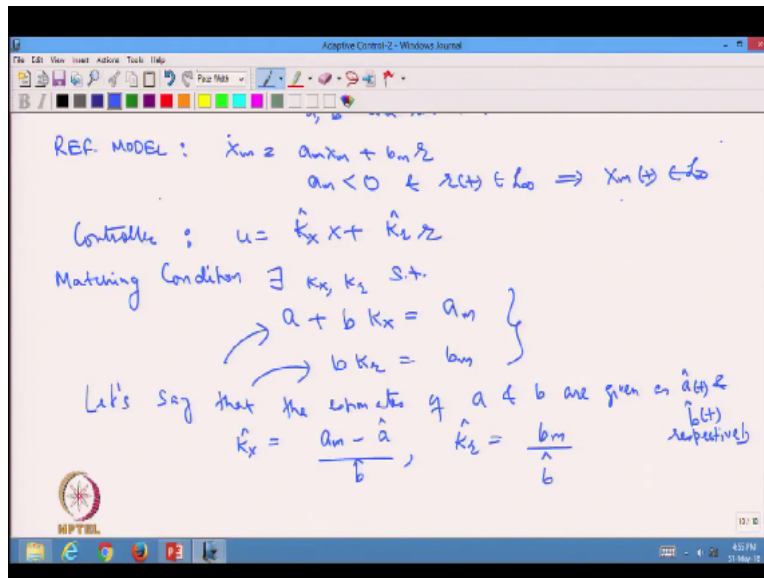 Adaptive Control-2 - Windows Journal
File Edit View Insert Actions Tools Help
B I
REF. MODEL : ẋm = am xm + bm r
am < 0 & r(t) ∈ L∞ ⇒ xm(t) ∈ L∞
Controller : u = k̂x x + k̂r r
Matching Condition ∃ kx, kr s.t.
a + b kx = am
b kr = bm
Let's say that the estimates of a & b are given as â(t) &
b̂(t)
respectively
k̂x = (am - â) / b̂ , k̂r = bm / b̂
NPTEL
4:55 PM
31-May-18